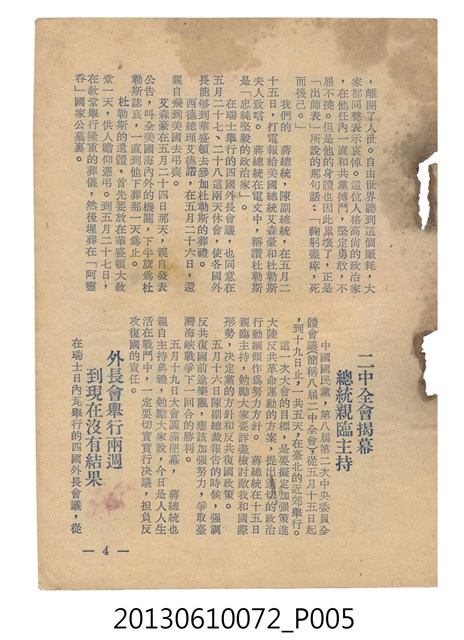 ，離開了人世。自由世界聽到這個噩耗，大
家都同聲表示哀悼。這位人格高尚的政治家
，在他任內一直和共黨搏鬥，堅定勇敢，不
屈不撓。但是他的身體也因此累壞了，正是
「出師表」所說的那句話：「鞠躬盡瘁，死
而後已。」
我們的　蔣總統，陳副總統，在五月二
十五日，打電報給美國總統艾森豪和杜勒斯
夫人致唁。　蔣總統在電文中，稱讚杜勒斯
是「忠純堅毅的政治家」。
在瑞士舉行的四國外長會議，也同意在
五月二十七、二十八這兩天休會，使各國外
長能够到華盛頓去參加杜勒斯的葬禮。
西德總理艾德諾，在五月二十六日，還
親自飛到美國去弔喪。
艾森豪在五月二十四日那天，親自發表
公告，叫全美國海內外的機關，下半旗爲杜
勒斯誌哀，一直到他下葬那一天爲止。
杜勒斯的遺體，首先要放在華盛頓大教
堂一天，供人瞻仰憑弔。到五月二十七日，
在教堂舉行隆重的葬儀，然後埋葬在「阿靈
吞」國家公墓裏。
二中全會揭幕
總統親臨主持
中國國民黨，第八屆第二次中央委員全
體會議（簡稱八屆二中全會）從五月十五日起
，到十九日止，一共五天，在臺北的近郊舉行。
這一次大會的目標，是要擬定加强策進
大陸反共革命運動的方案，提出適切的政治
行動綱領作爲努力方針。　蔣總統在十五日
親臨主持，勉勵大家要詳盡檢討敵我和國際
形勢，決定黨的方針和反共復國政策。
五月十六日陳副總裁報告的時候，强調
反共復國前途樂觀，應該加强努力，爭取臺
灣海峽戰爭下一回合的勝利。
五月十九日大會圓滿閉幕，　蔣總統也
親自主持典禮，勉勵大家說，今日是人人生
活在戰鬥中，一定要切實實行決議，担負反
攻復國的責任。
外長會舉行兩週
到現在沒有結果
在瑞士日內瓦舉行的四國外長會議，從
— 4 —
20130610072_P005